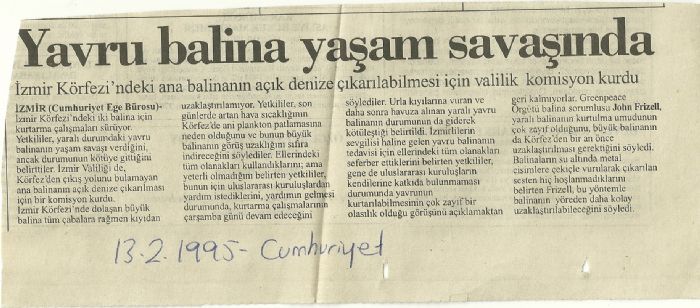 Yavru balina yaşam savaşında
İzmir Körfezi'ndeki ana balinanın açık denize çıkarılabilmesi için valilik komisyon kurdu
İZMİR (Cumhuriyet Ege Bürosu)-
İzmir Körfezi'ndeki iki balina için
kurtarma çalışmaları sürüyor.
Yetkililer, yaralı durumdaki yavru
balinanın yaşam savaşı verdiğini,
ancak durumunun kötüye gittiğini
belirttiler. İzmir Valiliği de,
Körfez'den çıkış yolunu bulamayan
ana balinanın açık denize çıkarılması
için bir komisyon kurdu.
İzmir Körfezi'nde dolaşan büyük
balina tüm çabalara rağmen kıyıdan
uzaklaştırılamıyor. Yetkililer, son
günlerde artan hava sıcaklığının
Körfez'de ani plankton patlamasına
neden olduğunu ve bunun büyük
balinanın görüş uzaklığını sıfıra
indireceğini söylediler. Ellerindeki
tüm olanakları kullandıklarını; ama
yeterli olmadığını belirten yetkililer,
bunun için uluslararası kuruluşlardan
yardım istediklerini, yardımın gelmesi
durumunda, kurtarma çalışmalarının
çarşamba günü devam edeceğini
söylediler. Urla kıyılarına vuran ve
daha sonra havuza alınan yaralı yavru
balinanın durumunun da giderek
kötüleştiği belirtildi. İzmirlilerin
sevgilisi haline gelen yavru balinanın
tedavisi için ellerindeki tüm olanakları
seferber ettiklerini belirten yetkililer,
gene de uluslararası kuruluşların
kendilerine katkıda bulunmaması
durumunda yavrunun
kurtarılabilmesinin çok zayıf bir
olasılık olduğu görüşünü açıklamaktan
geri kalmıyorlar. Greenpeace
Örgütü balina sorumlusu John Frizell,
yaralı balinanın kurtulma umudunun
çok zayıf olduğunu, büyük balinanın
da Körfez'den bir an önce
uzaklaştırılması gerektiğini söyledi.
Balinaların su altında metal
cisimlere çekiçle vurularak çıkarılan
sesten hiç hoşlanmadıklarını
belirten Frizell, bu yöntemle
balinanın yöreden daha kolay
uzaklaştırılabileceğini söyledi.
13.2.1995- Cumhuriyet